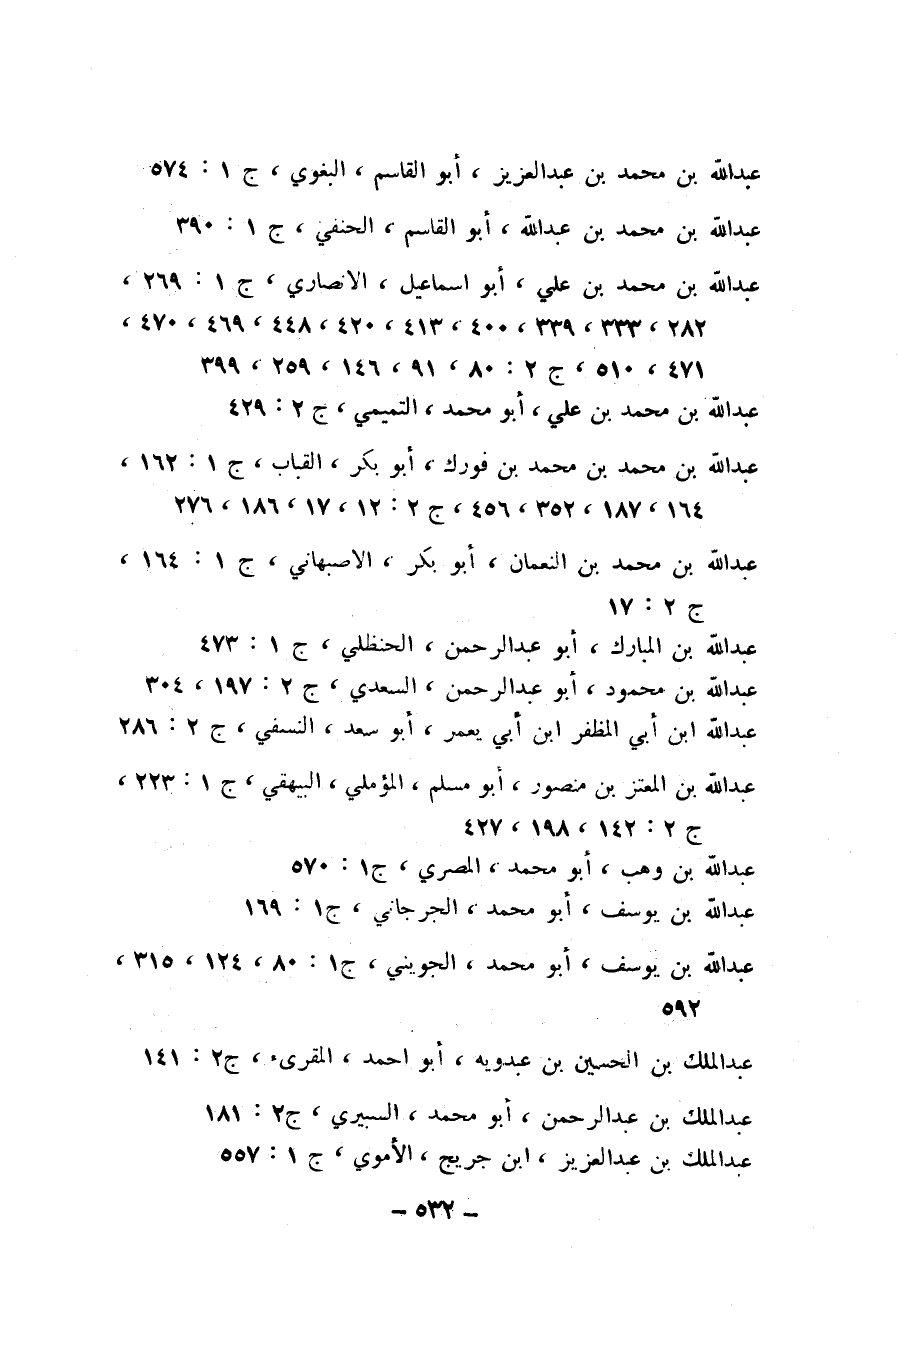 عبدالله بن محمد بن عبدالعزيز ، أبو القاسم ، البغوي ، ج ١ : ٥٧٤
عبدالله بن محمد بن عبدالله ، أبو القاسم ، الحنفي ، ج ١ : ٣٩٠
عبدالله بن محمد بن علي ، أبو اسماعيل ، الانصاري ، ج ١ : ٢٦٩ ،
٢٨٢ ، ٣٣٣ ، ٣٣٩ ، ٤٠٠ ، ٤١٣ ، ٤٢٠ ، ٤٤٨ ، ٤٦٩ ، ٤٧٠ ،
٤٧١ ، ٥١٠ ، ج ٢ : ٨٠ ، ٩١ ، ١٤٦ ، ٢٥٩ ، ٣٩٩
عبدالله بن محمد بن علي ، أبو محمد ، التميمي ، ج ٢ : ٤٢٩
عبدالله بن محمد بن محمد بن فورك ، أبو بكر ، القباب ، ج ١ : ١٦٢ ،
١٦٤ ، ١٨٧ ، ٣٥٢ ، ٤٥٦ ، ج ٢ : ١٢ ، ١٧ ، ١٨٦ ، ٢٧٦
عبدالله بن محمد بن النعمان ، أبو بكر ، الاصبهاني ، ج ١ : ١٦٤ ،
ج ٢ : ١٧
عبدالله بن المبارك ، أبو عبدالرحمن ، الحنظلي ، ج ١ : ٤٧٣
عبدالله بن محمود ، أبو عبدالرحمن ، السعدي ، ج ٢ : ١٩٧ ، ٣٠٤
عبدالله ابن أبي المظفر ابن أبي يعمر ، أبو سعد ، النسفي ، ج ٢ : ٢٨٦
عبدالله بن المعتز بن منصور ، أبو مسلم ، المؤملي ، البيهقي ، ج ١ : ٢٢٣ ،
ج ٢ : ١٤٢ ، ١٩٨ ، ٤٢٧
عبدالله بن وهب ، أبو محمد ، المصري ، ج١ : ٥٧٠
عبدالله بن يوسف ، أبو محمد ، الجرجاني ، ج١ : ١٦٩
عبدالله بن يوسف ، أبو محمد ، الجويني ، ج١ : ٨٠ ، ١٢٤ ، ٣١٥ ،
٥٩٢
عبدالملك بن الحسين بن عبدويه ، أبو احمد ، المقرىء ، ج٢ : ١٤١
عبدالملك بن عبدالرحمن ، أبو محمد ، السبيري ، ج٢ : ١٨١
عبدالملك بن عبدالعزيز ، ابن جريج ، الأموي ، ج ١ : ٥٥٧
– ٥٣٢ –